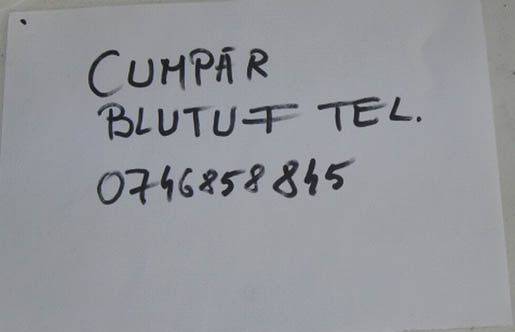 CUMPĂR
BLUTUF TEL.
0746858845